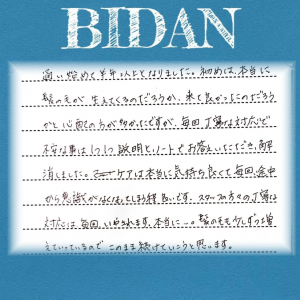 BIDAN
通い始めて半年以上となりました。初めは、本当に
髪の毛が生えてくるのだろうか、来て良かったのだろう
かと心配の方が多かったですが、毎回、丁寧な対応で
不安な事は1つ1つ説明と、ノートでお答えいただき、解
消しました。ケアは本当に気持ち良くて毎回、途中
から意識がなくなってしまう程、良いです。スタッフの方々の丁寧な
対応は毎回、いやされます。本当に…。髪の毛も少しずつ増
えていっているので、このまま続けていこうと思います。